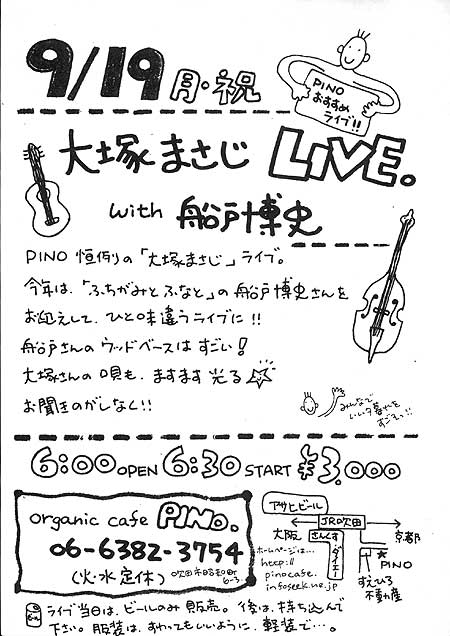 9/19 月・祝
PINO
おすすめ
ライブ!!
大塚まさじ LIVE.
with 船戸博史
PINO 恒例の「大塚まさじ」ライブ。
今年は、「ふちがみとふなと」の船戸博史さんを
お迎えして、ひと味違うライブに!!
船戸さんのウッドベースはすごい!
大塚さんの唄も、ますます光る☆
お聞きのがしなく!!
みんなで
いい夕暮れを
すごそう!!
6:00 OPEN 6:30 START ¥3,000
organic cafe PINO.
06-6382-3754
(火・水 定休) 吹田市昭和町
6-3
アサヒビール
JR吹田
大阪
京都
さんくす
ダイエー
★
PINO
すえひろ
不動産
ホームページは…
http://
pinocafe.
infoseek.ne.jp
ライブ当日は、ビールのみ販売。後は、持ち込んで
下さい。服装は、すわってもいいように、軽装で…。